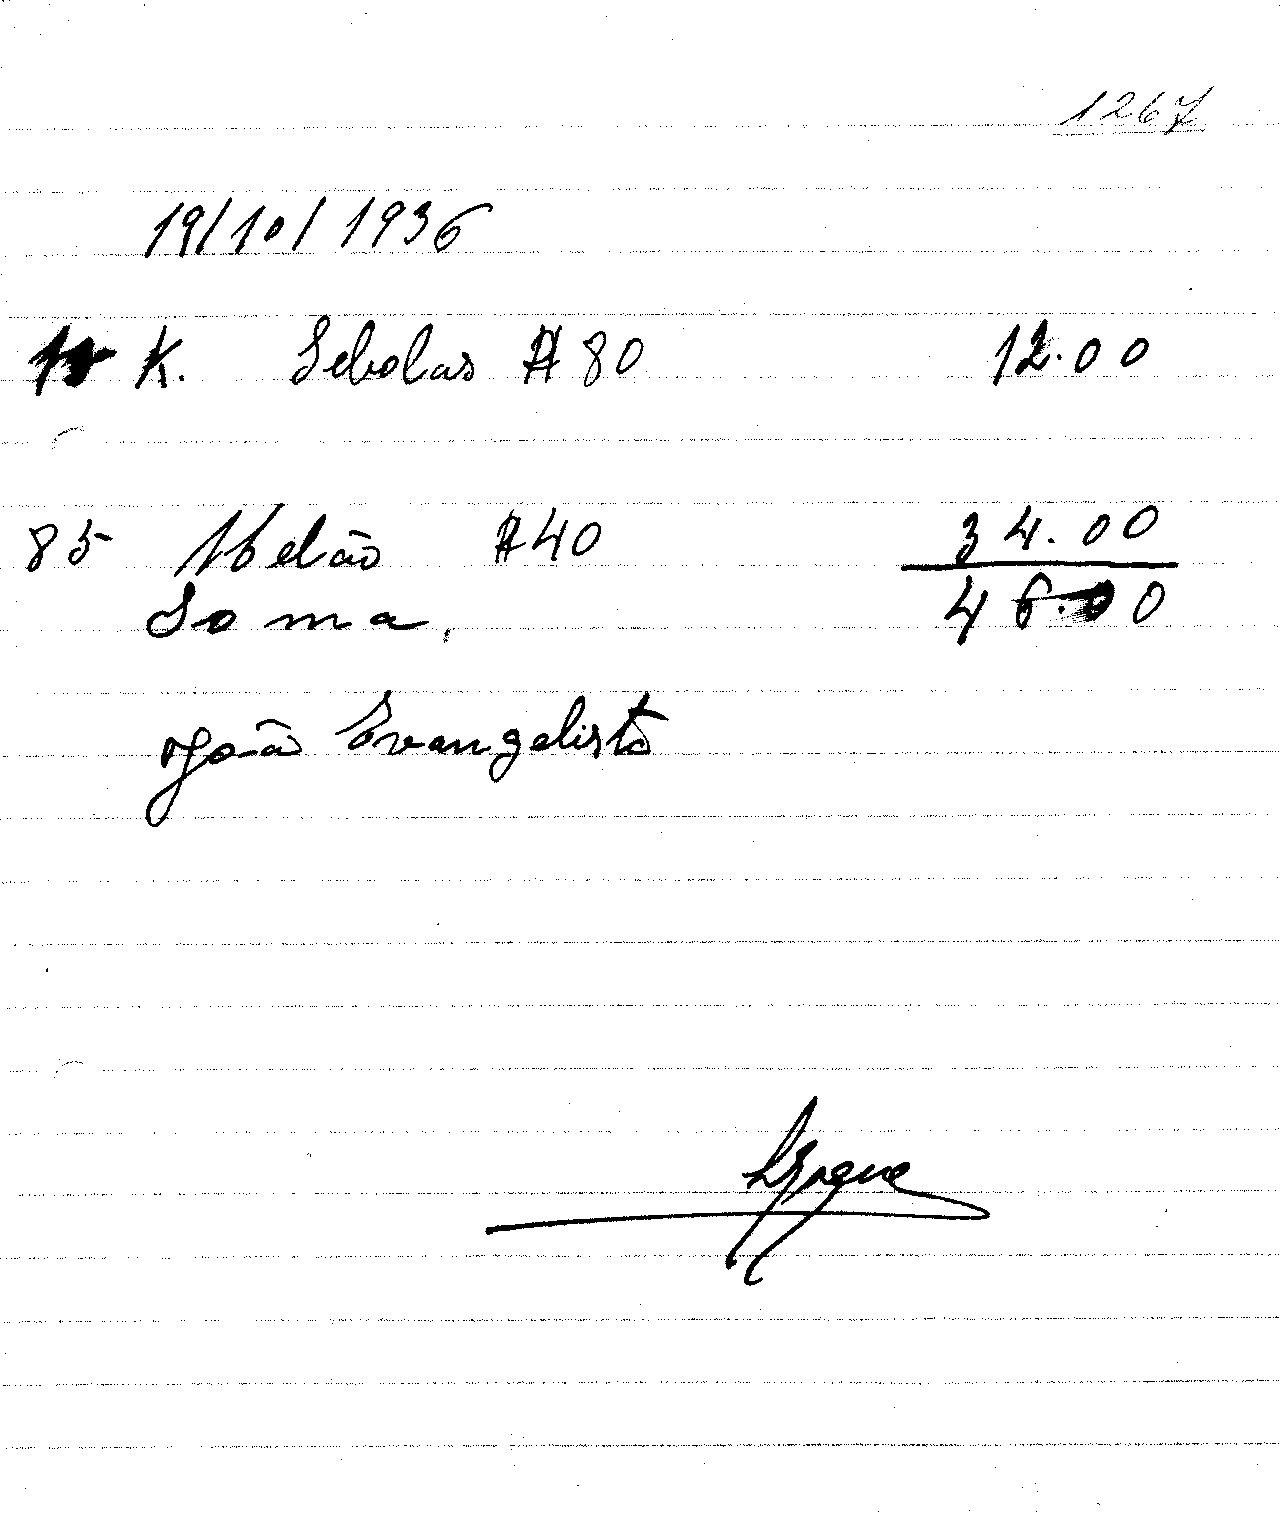 1267
19/10/1936
15 K. Sebolas A 80 12.00
85 Melão A 40 34.00
Soma, 46.00
João Evangelista